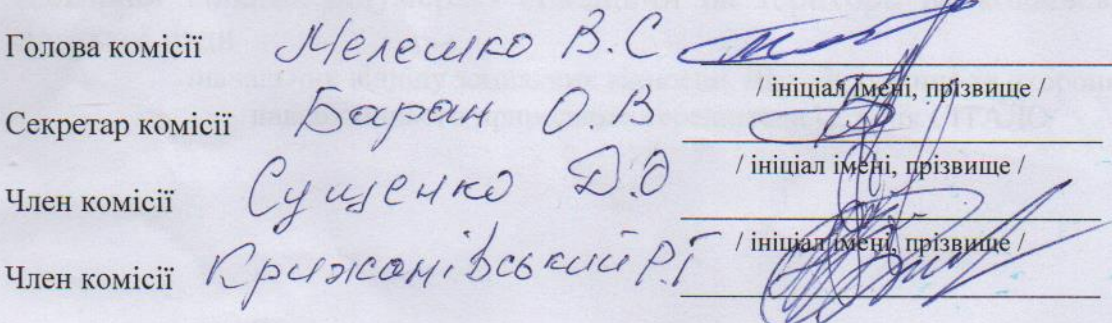 Голова комісії Мелешко В.С
/ ініціал імені, прізвище /
Секретар комісії Баран О.В
/ ініціал імені, прізвище /
Член комісії Сущенко Д.О
/ ініціал імені, прізвище /
Член комісії Крижанівський Р.Г